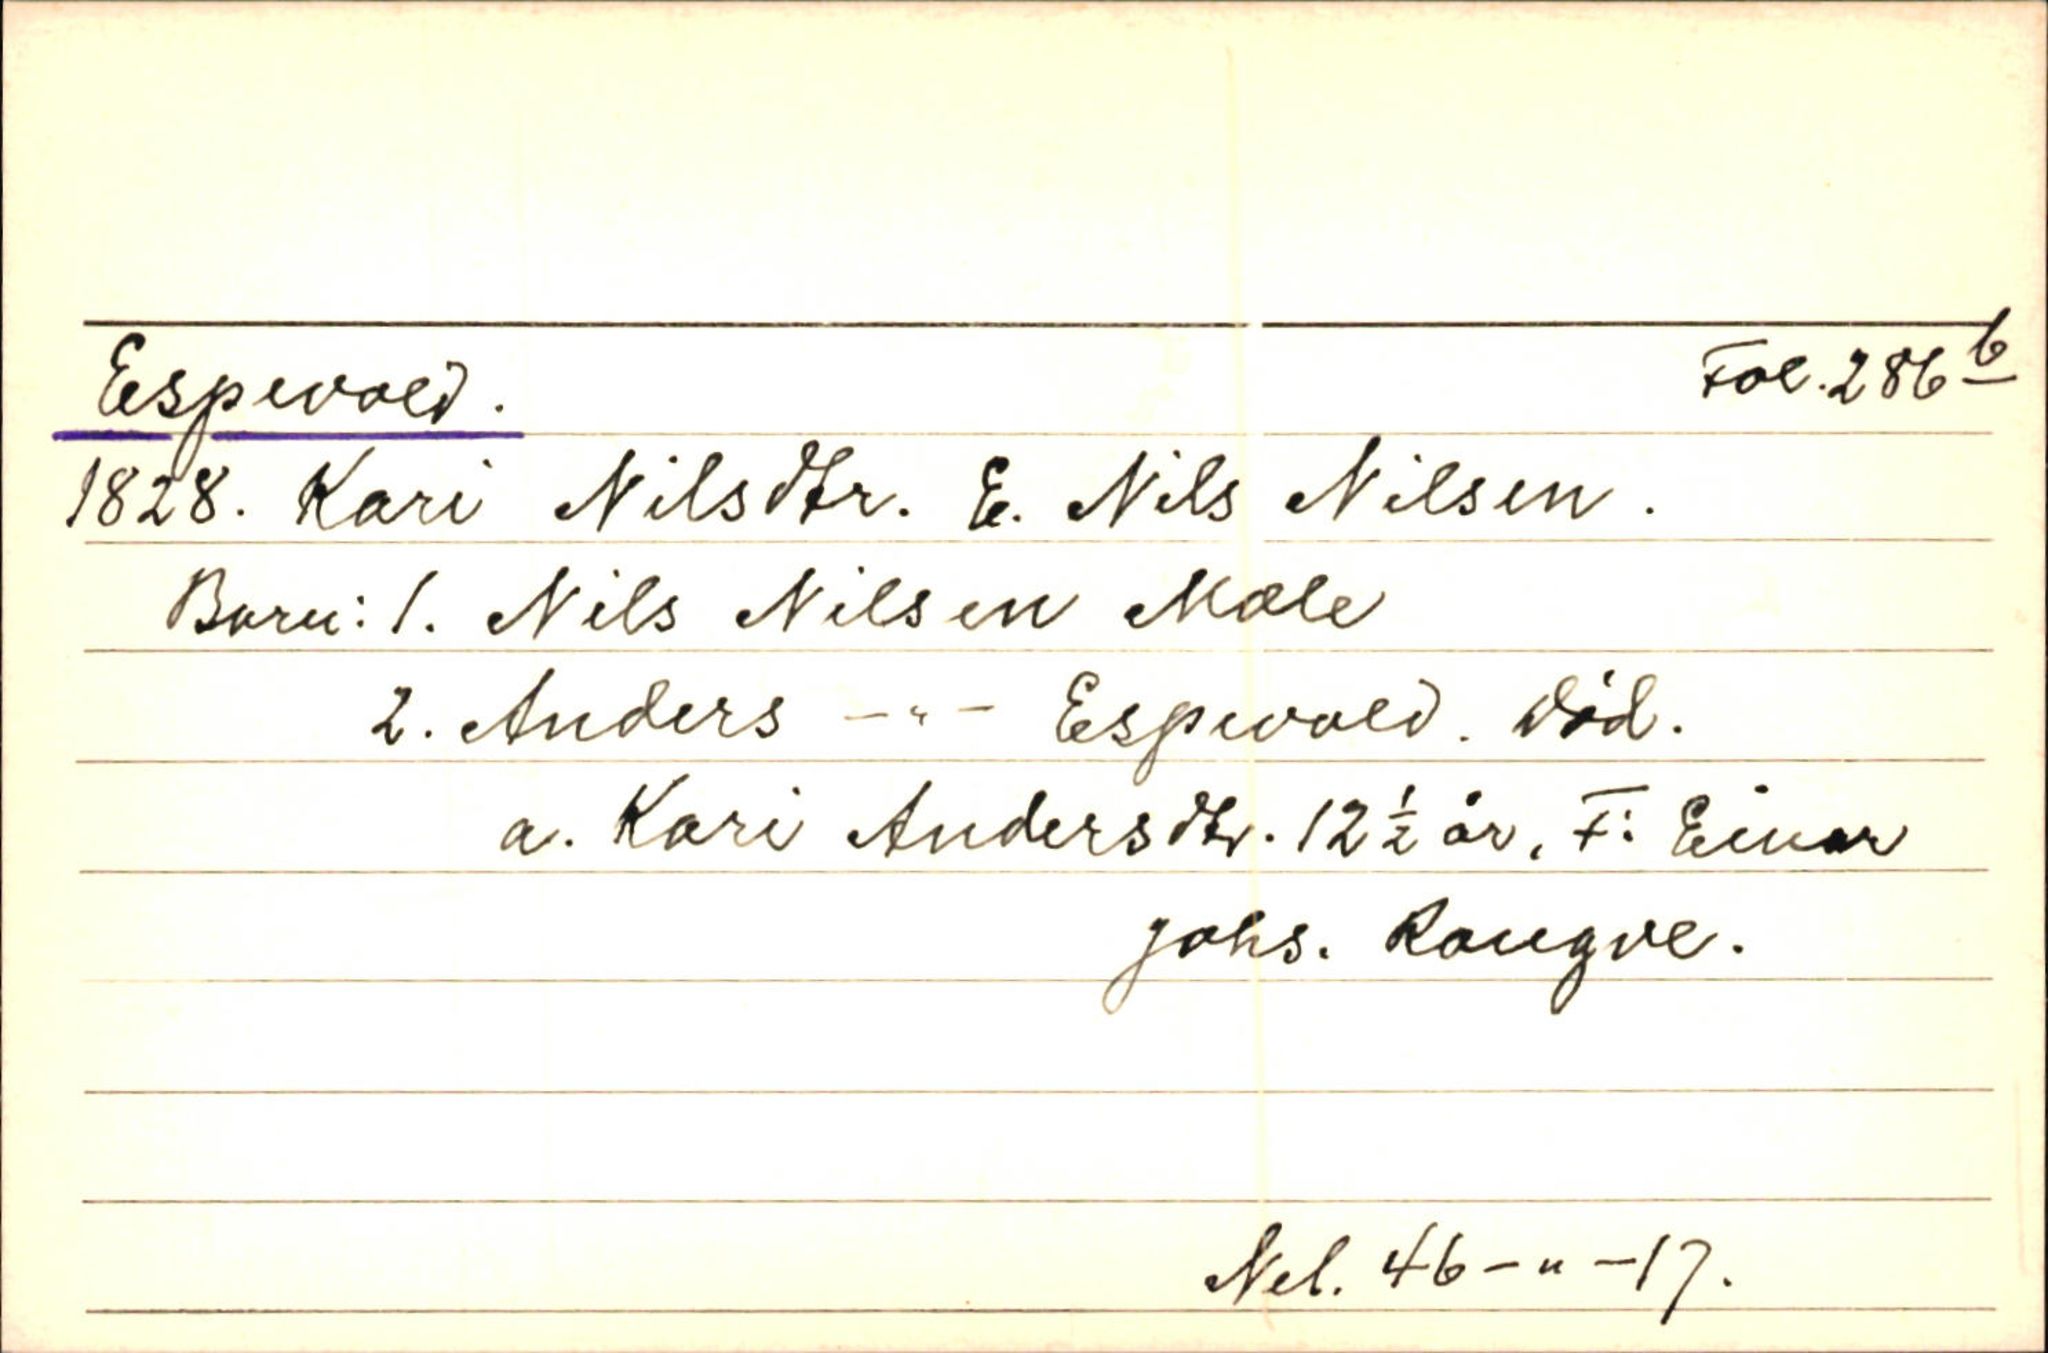 Espevold. Fol. 286 b
1828. Kari Nilsdtr. E. Nils Nilsen.
Born: 1. Nils Nilsen Mæle
2. Anders —"— Espevold. Död.
a. Kari Andersdtr. 12½ år, F: Einar
Johs. Rongve.
Nel. 46 —"— 17.